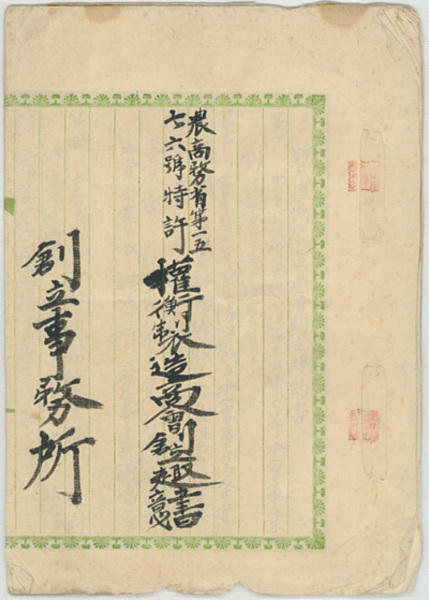 農商務省第一五
七六號特許
權衡製造商會創立趣意書
創立事務所